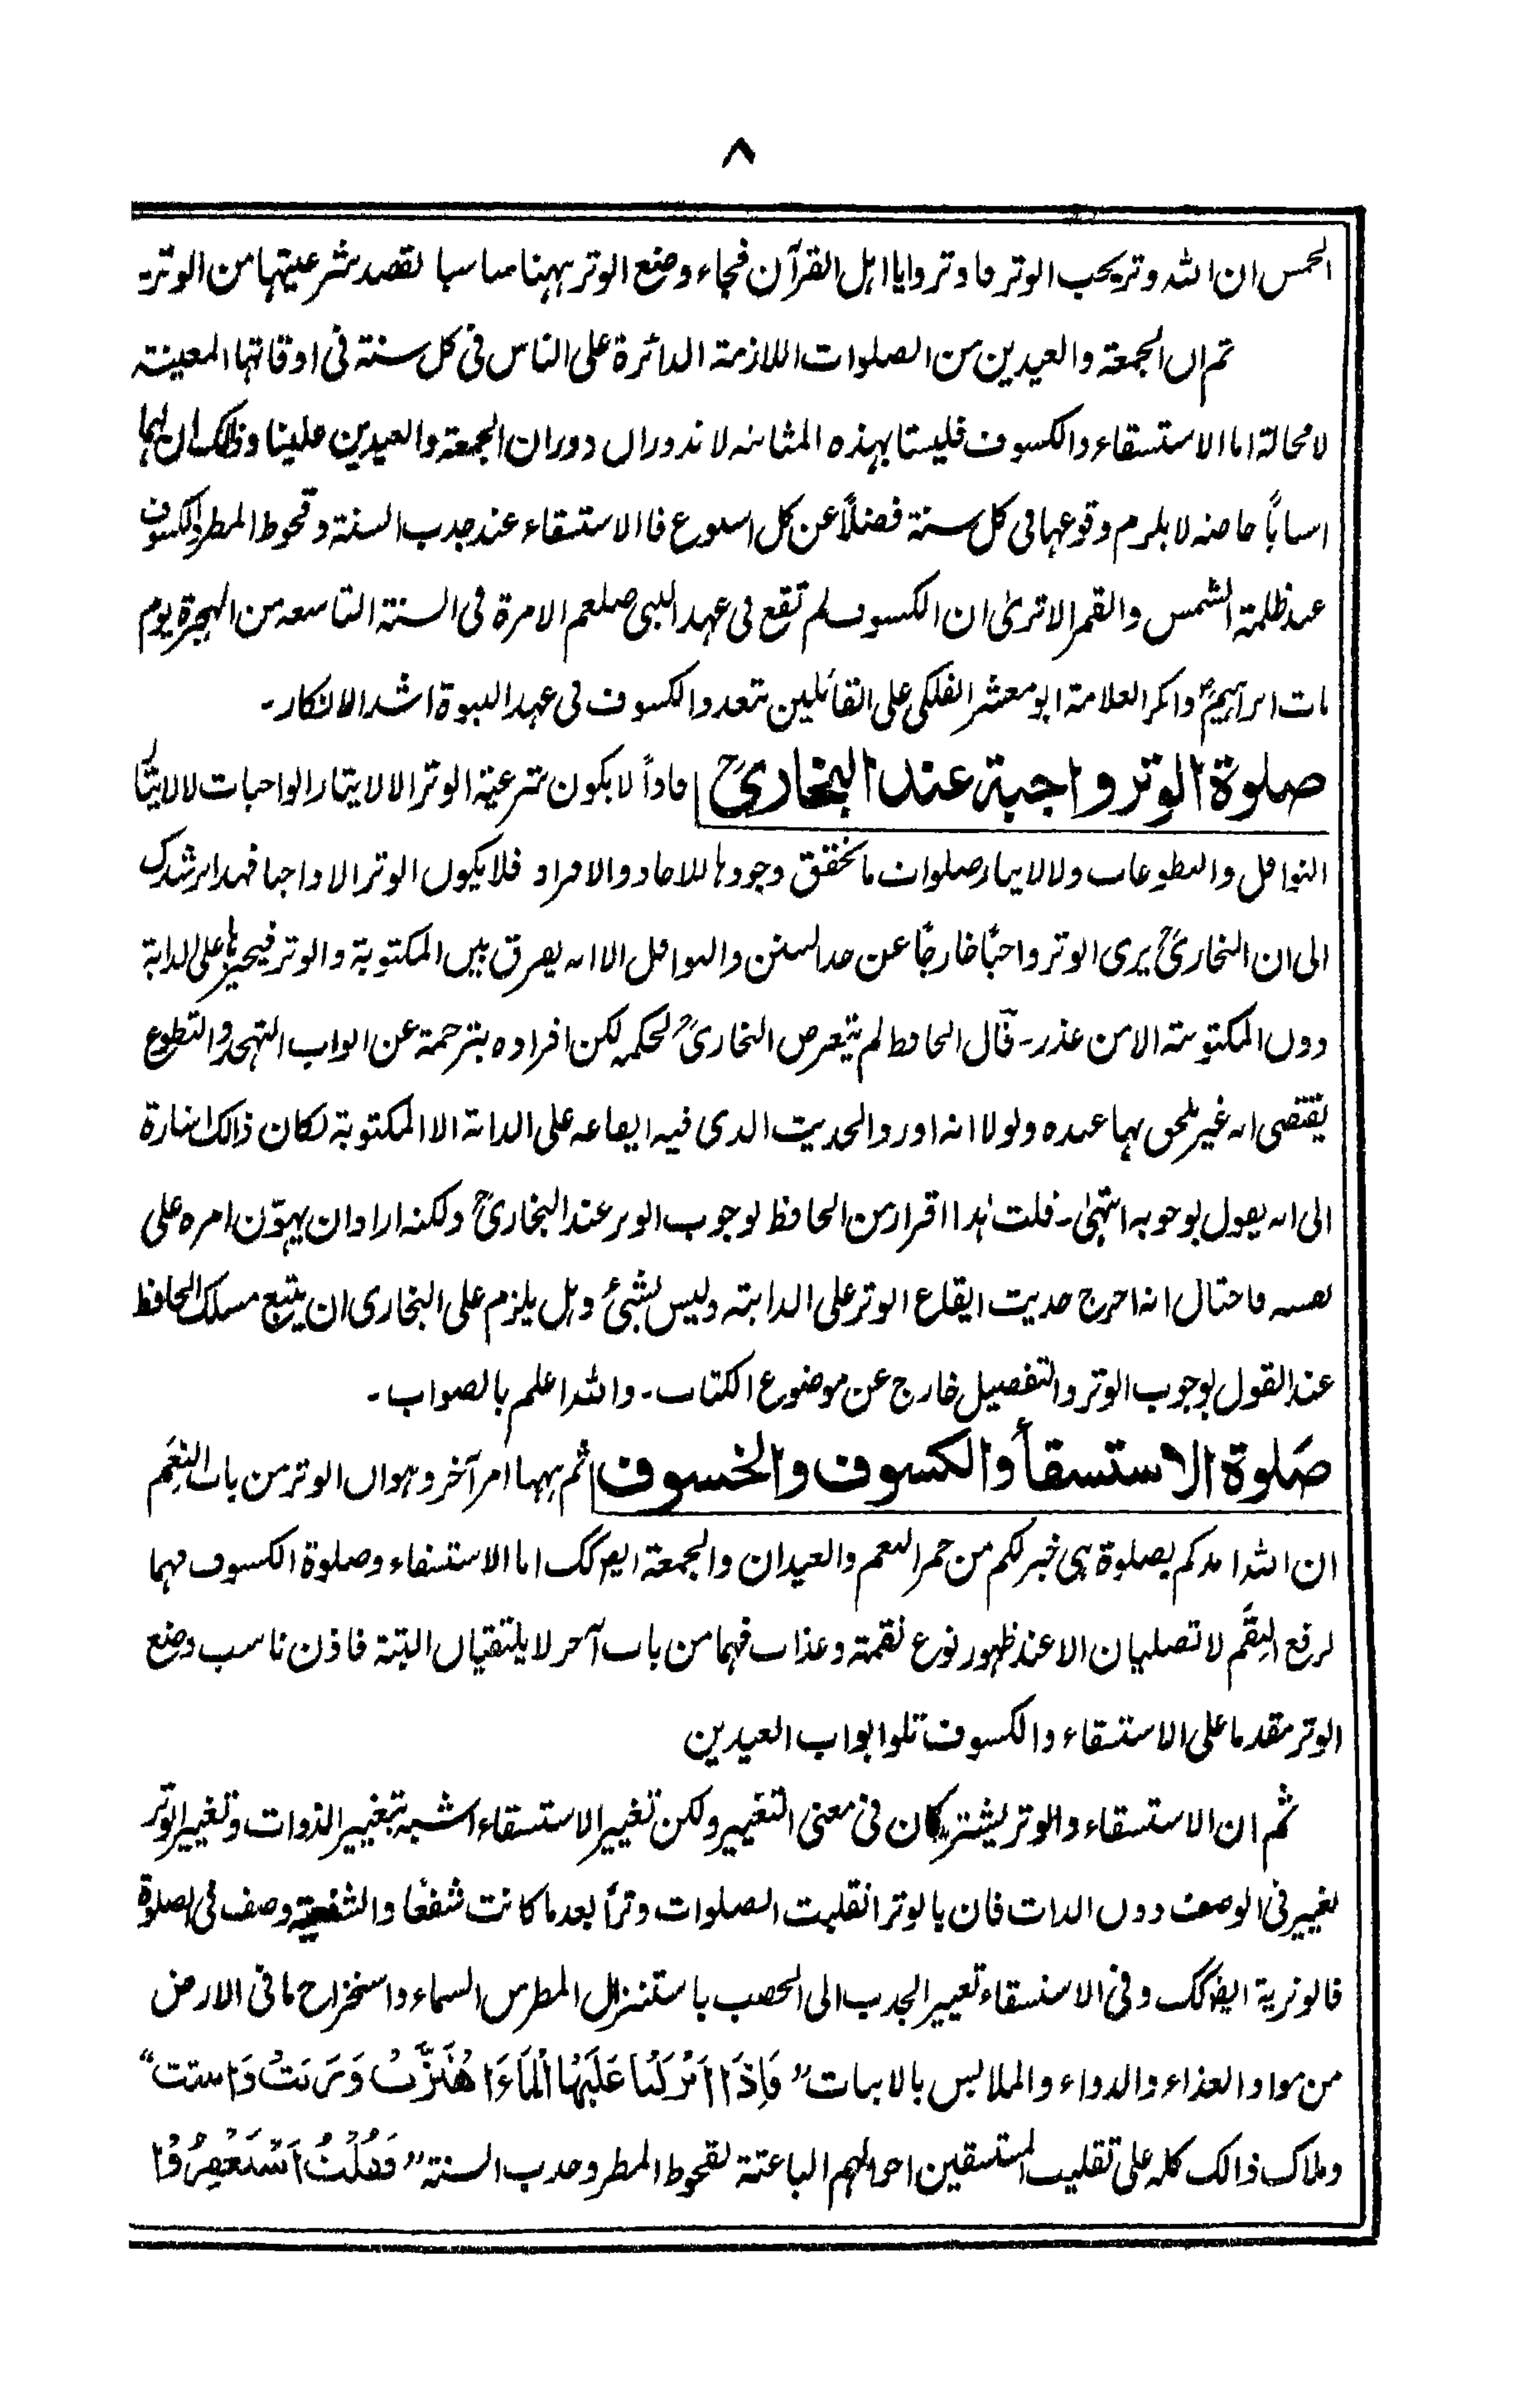 ۸
الخمس ان اللہ وتر یحب الوتر فاوتروا یا اہل القرآن فجاء وضع الوتر ہہنا مناسبا لقصد شرعیتہا من الوتر۔
ثم ان الجمعة والعیدین من الصلوات اللازمة الدائرة علی الناس فی کل سنة فی اوقاتہا المعینة
لا محالة اما الاستسقاء والکسوف فلیستا بہذہ المثابة لا تدوران دوران الجمعة والعیدین علینا وذلک ان لہما
اسبابًا خاصة لا یلزم وقوعہا فی کل سنة فضلاً عن کل اسبوع فالاستسقاء عند جدب السنة وقحوط المطر والکسوف
عند ظلمة الشمس والقمر الا تریٰ ان الکسوف لم تقع فی عہد النبی صلعم الا مرة فی السنة التاسعة من الہجرة یوم
مات ابراہیمؑ وانکر العلامة ابو معشر الفلکی علی القائلین بتعدد الکسوف فی عہد النبوة اشد الانکار۔
صلوة الوتر واجبة عند البخاریؒ فاذاً لا یکون شرعیة الوتر الا لایتار الواجبات لا لایتار
النوافل والتطوعات ولا لایتار صلوات ما تحقق وجودہا للاحاد والافراد فلا یکون الوتر الا واجبا فہذا یرشدک
الی ان البخاریؒ یری الوتر واجبًا خارجًا عن حد السنن والنوافل الا انہ یفرق بین المکتوبة والوتر فیجیزہا علی الدابة
دون المکتوبة الا من عذر۔ قال الحافظ لم یتعرض البخاریؒ لحکمہ لکن افرادہ بترجمة عن ابواب التہجد والتطوع
یقتضی انہ غیر ملحق بہا عندہ ولولا انہ اورد الحدیث الذی فیہ ایقاعہ علی الدابة الا المکتوبة لکان ذالک اشارة
الی انہ یقول بوجوبہ انتہیٰ۔ قلت ہذا اقرار من الحافظ لوجوب الوتر عند البخاریؒ ولکنہ اراد ان یہوّن امرہ علی
نفسہ فاحتال انہ اخرج حدیث ایقاع الوتر علی الدابتہ ولیس بشیٔ وہل یلزم علی البخاری ان یتبع مسلک الحافظ
عند القول بوجوب الوتر والتفصیل خارج عن موضوع الکتاب۔ واللہ اعلم بالصواب۔
صَلوة الاستسقأ والکسوف والخسوف ثم ہہنا امر آخر وہو ان الوتر من باب النِعَم
ان اللہ امدکم بصلوة ہی خیر لکم من حمر النعم والعیدان والجمعة ایضا کک اما الاستسقاء وصلوة الکسوف فہما
لرفع النِقَم لا تصلیان الا عند ظہور نوع نقمة وعذاب فہما من باب آخر لا یلتقیان البتة فاذن ناسب وضع
الوتر مقدما علی الاستسقاء والکسوف تلو ابواب العیدین
ثم ان الاستسقاء والوتر یشترکان فی معنی التغییر ولکن تغییر الاستسقاء اشبہ بتغییر الذوات وتغییر الوتر
تغییر فی الوصف دون الذات فان بالوتر انقلبت الصلوات وترًا بعد ما کانت شفعًا والشفعیة وصف فی الصلوة
فالوتریة ایضا کک وفی الاستسقاء تغییر الجدب الی الخصب باستنزال المطر من السماء واستخراج ما فی الارض
من مواد الغذاء والدواء والملابس بالانبات ”فَاِذَا اَنْزَلْنَا عَلَیْهَا الْمَاءَ اهْتَزَّتْ وَرَبَتْ وَانبتت“
وملاک ذالک کلہ علی تقلیب المستسقین احوالہم الباعثة لقحوط المطر وجدب السنة ”فَقُلْتُ اسْتَغْفِرُوْا